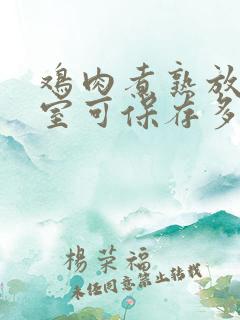 鸡肉煮熟放
室可保存多
杨荣福
未经同意禁止转载